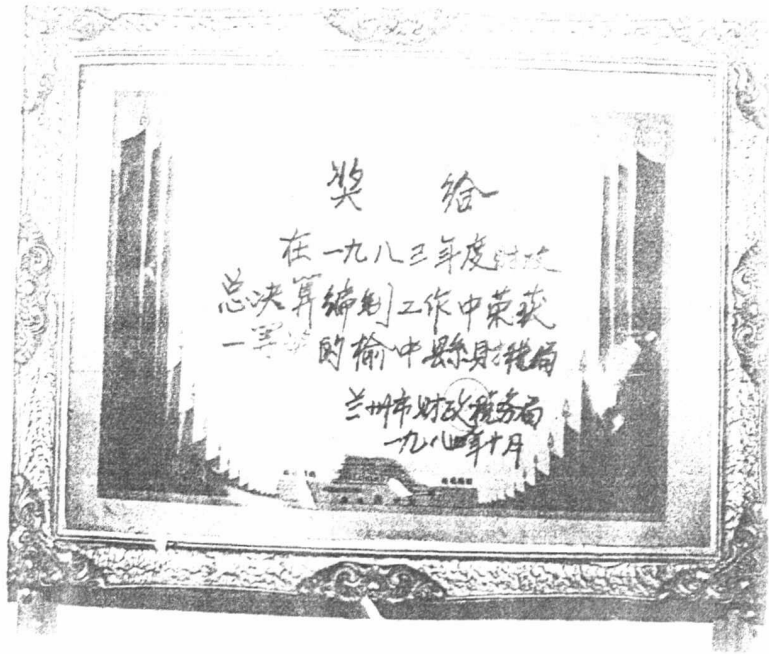 奖 给
在一九八三年度财政
总决算编制工作中荣获
一等奖的榆中縣財税局
兰州市财政税务局
一九八四年十月